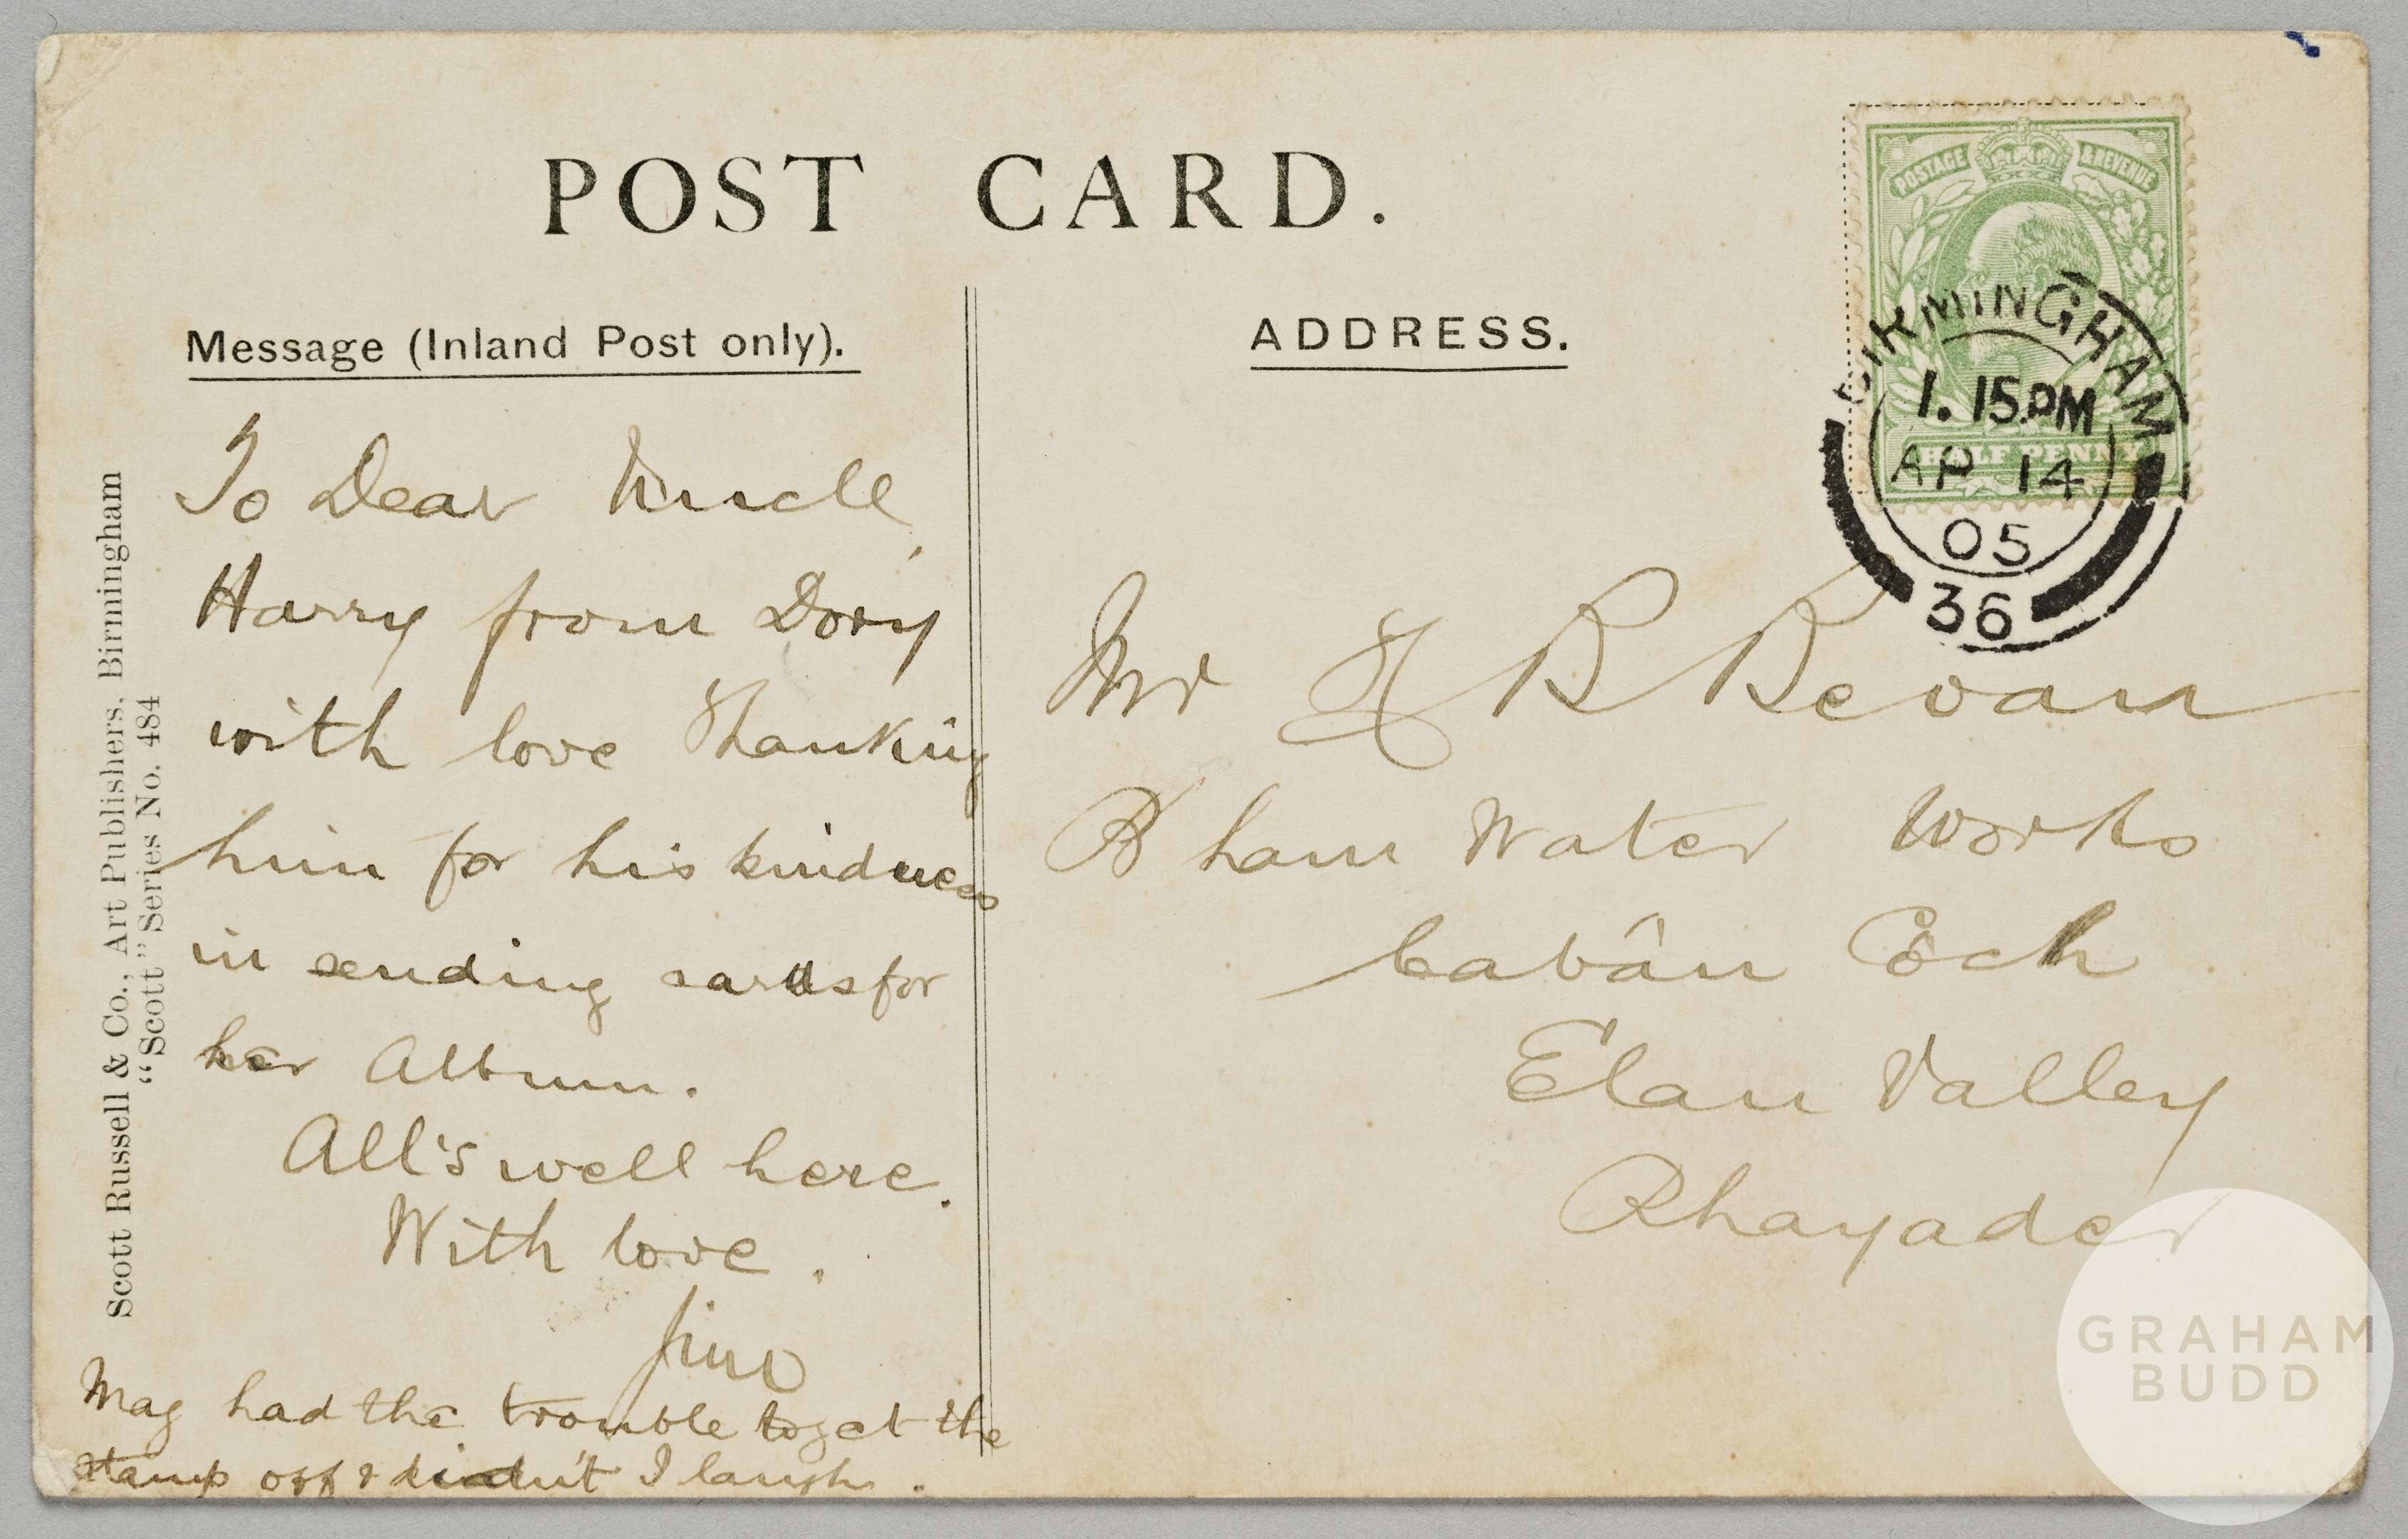 POST CARD.
Message (Inland Post only).
To Dear Uncle,
Harry from Dory
with love Thanking
him for his kindness
in sending cards for
her Album.
All's well here.
With love.
Jim
Mag had the trouble to get the
stamp off & didn't I laugh.
Scott Russell & Co., Art Publishers, Birmingham
"Scott" Series No. 484
ADDRESS.
Mr H B Bevan
B'ham Water Works
Cabân Coch
Elan Valley
Rhayader
POSTAGE & REVENUE
HALF PENNY
BIRMINGHAM
1.15PM
AP 14
05
36
GRAHAM
BUDD